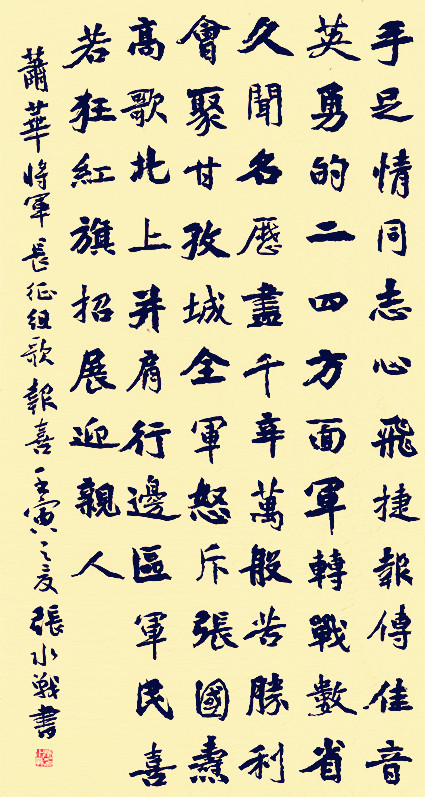 手足情同志心飛捷報傳佳音
英勇的二四方面軍轉戰數省
久聞名歷盡千辛萬般苦勝利
會聚甘孜城全軍怒斥張國燾
高歌北上并肩行邊區軍民喜
若狂紅旗招展迎親人
蕭華將軍長征组歌報喜壬寅之夏張水戰書